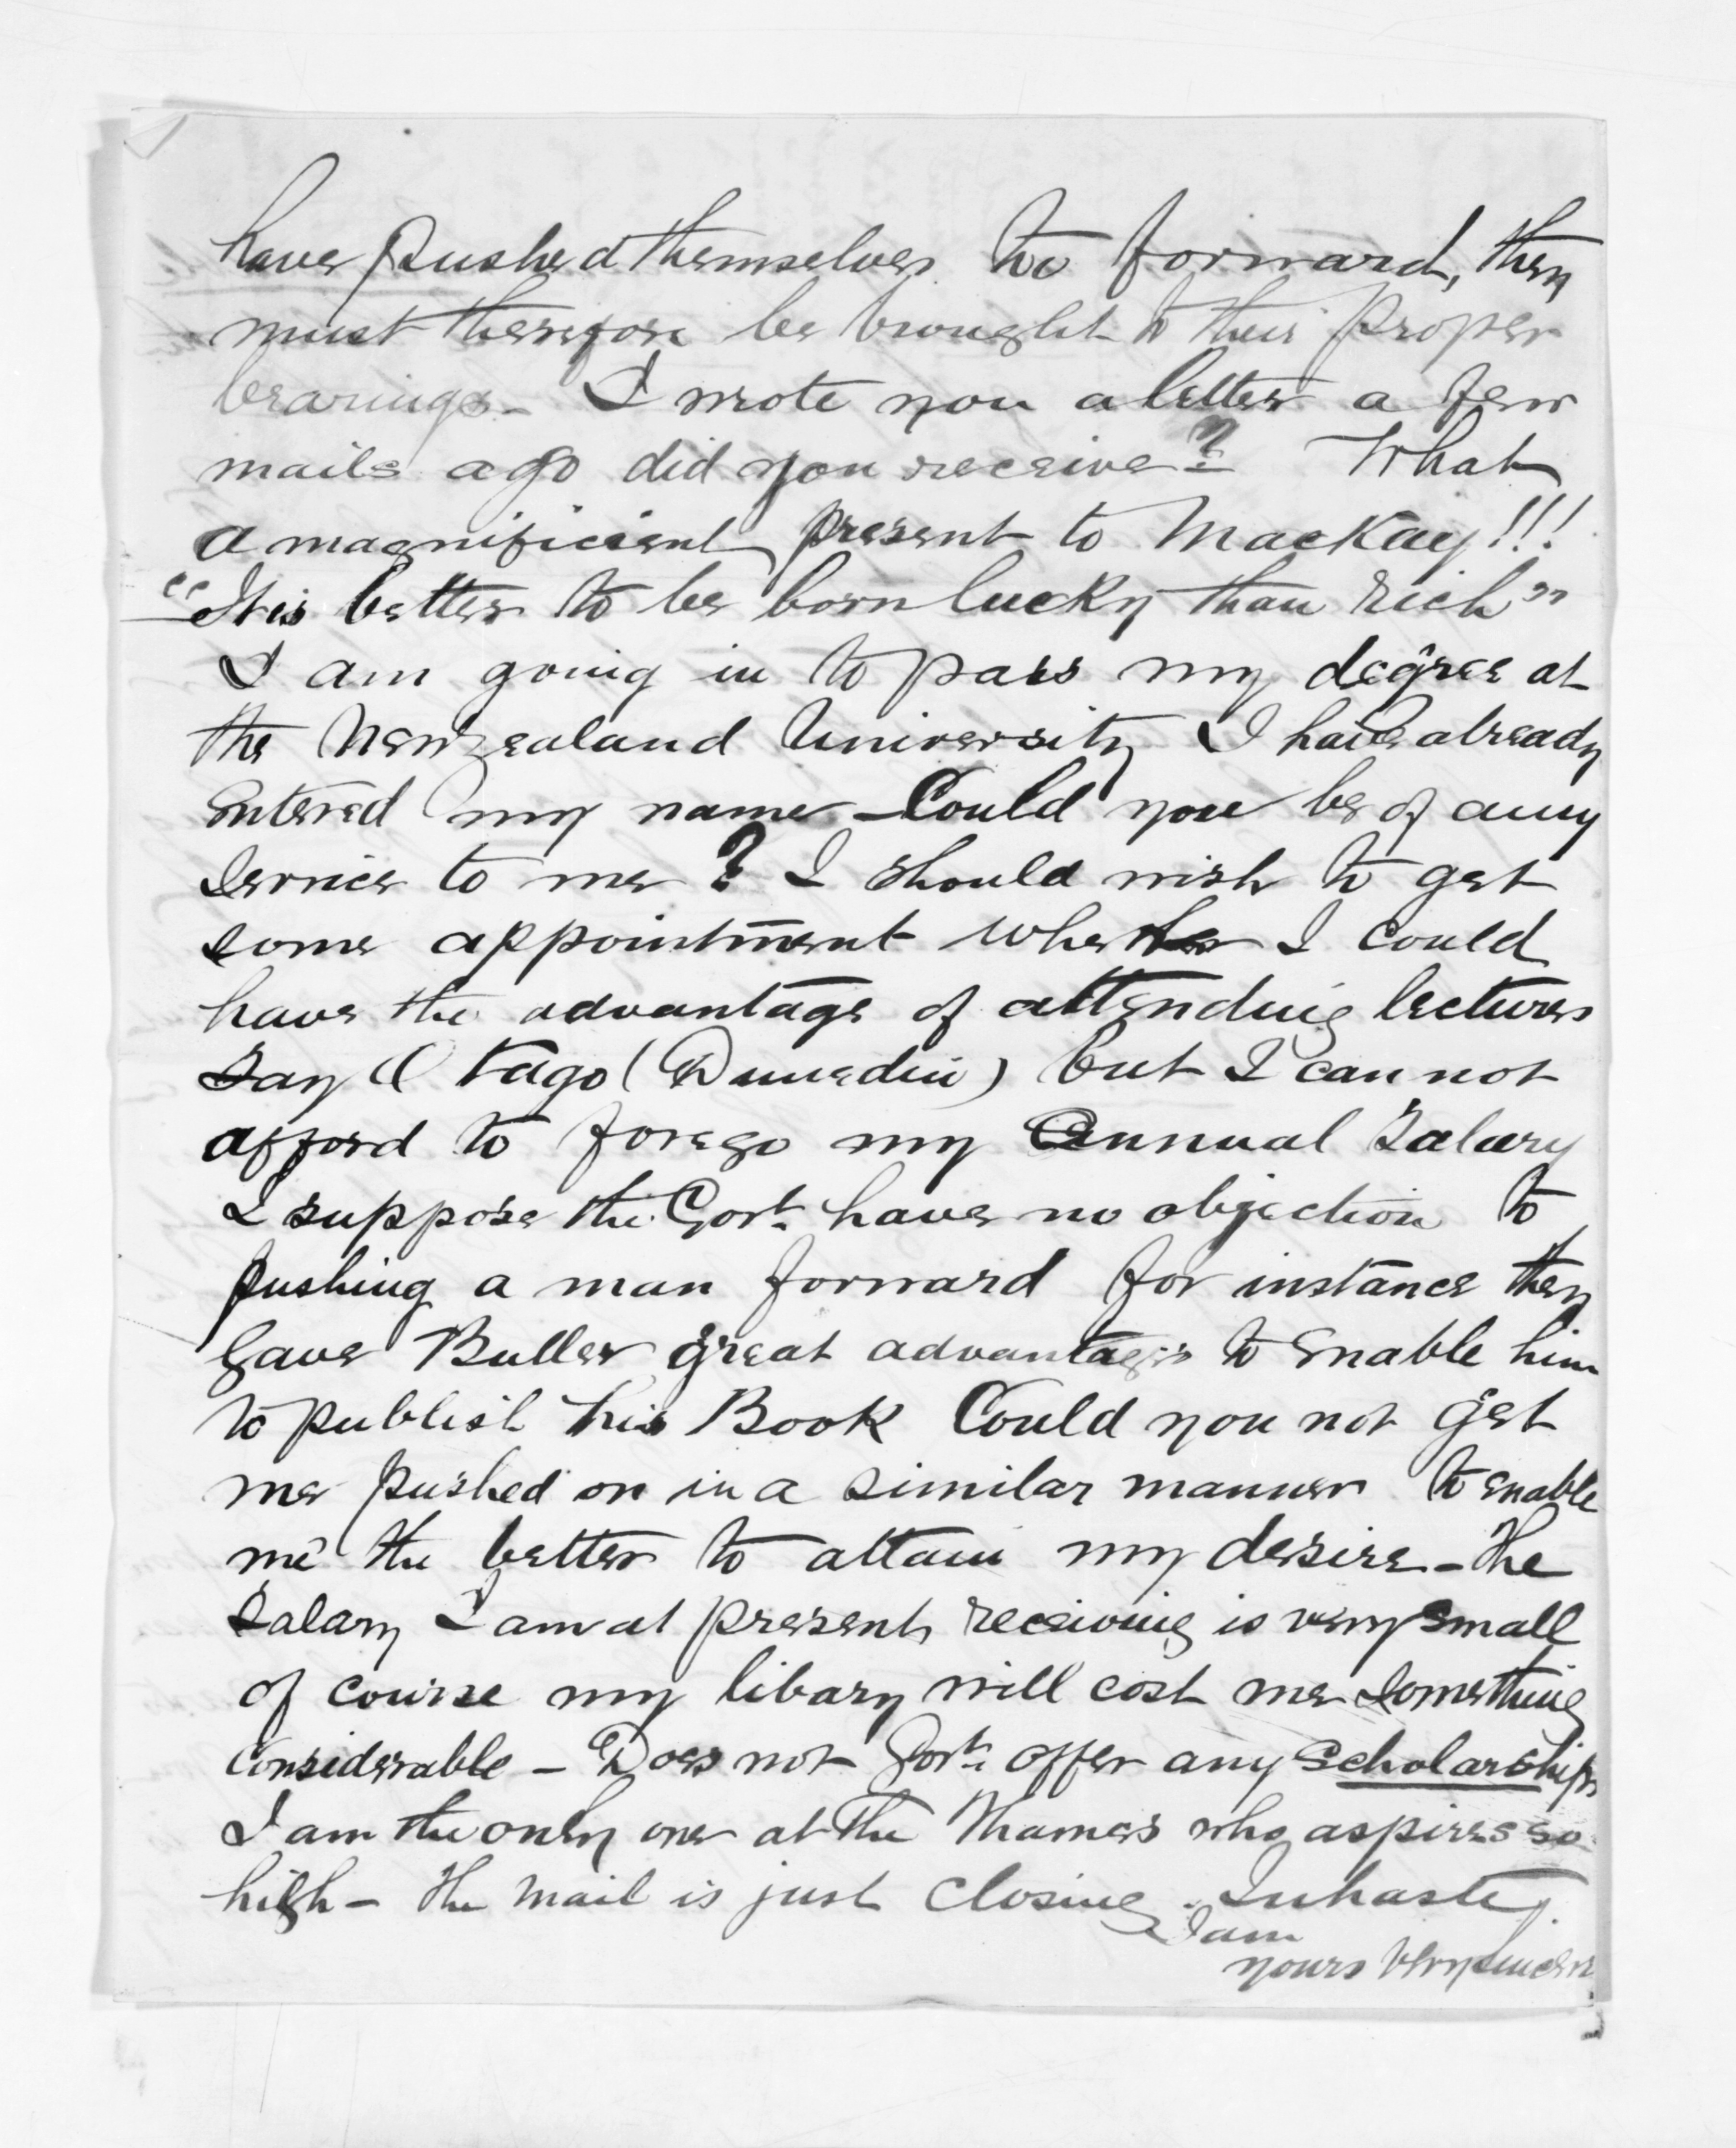 have pushed themselves to forward, they
must therefore be brought to their proper
bearings - I wrote you a letter a few
mails ago did you receive? What
a magnificient present to MacKay!!!
"It is better to be born lucky than rich"
I am going in to pass my degree at
the New Zealand University I have already
entered my name - Could you be of any
service to me? I should wish to get
some appointment where I could
have the advantage of attending lectures
say Otago (Dunedin) but I can not
afford to forego my Annual Salary
I suppose the Govt. have no objection to
pushing a man forward for instance they
gave Buller great advantages to enable him
to publish his Book Could you not get
me pushed on in a similar manner to enable
me the better to attain my desire - The
Salary I am at present receiving is very small
of course my libary will cost me something
considerable - Does not Govt. offer any Scholarships
I am the only one at the Thames who aspires so
high - The Mail is just closing. In haste,
I am
yours very sincere